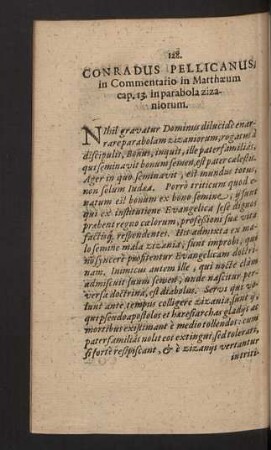 128.
CONRADUS PELLICANUS,
in Commentario in Matthæum
cap. 13. in parabola ziza-
niorum.
Nihil gravatur Dominus dilucidè enar-
rare parabolam zizaniorum, rogatus à
discipulis, Bonus, inquit, ille paterfamiliâs,
qui seminavit bonum semen, est pater cœlestis.
Ager in quo seminavit, est mundus totus,
non solum Iudæa. Porrò triticum quod e-
natum est bonum ex bono semine, ij sunt
qui ex institutione Evangelica sese dignos
præbent regno cœlorum, professioni suæ vita
factisq́ respondentes. His admixta ex ma-
lo semine mala zizania, sunt improbi, qui
non syncerè profitentur Evangelicam doctri-
nam. Inimicus autem ille, qui nocte clam
admiscuit suum semen, unde nascitur per-
versa doctrina, est diabolus. Servi qui vo-
lunt ante tempus colligere zizania, sunt ij,
qui pseudoapostolos et hæresiarchas gladijs ac
mortibus existimant è medio tollendos: cum
paterfamiliâs nolit eos extingui, sed tolerari,
si fortè resipiscant, & è zizanijs vertantur
in triti-